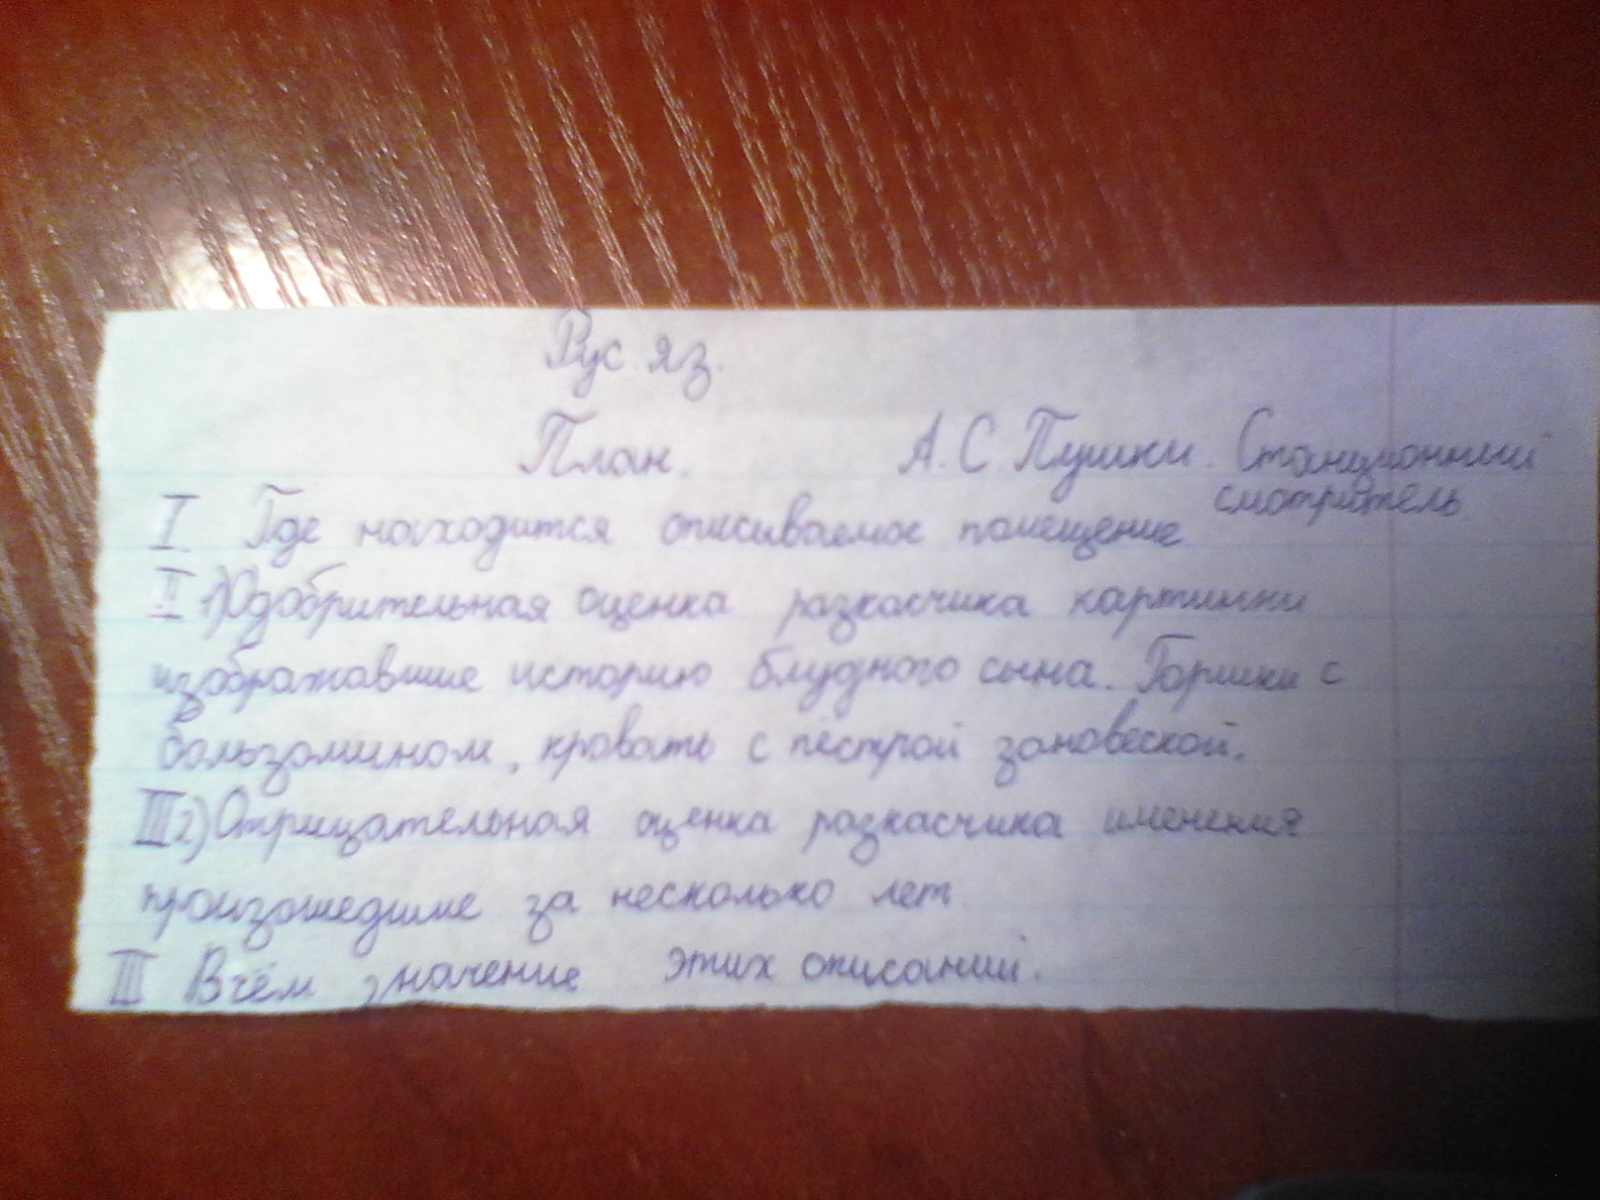 Рус. яз.
План. А. С. Пушкин. Станционный
смотритель
I Где находится описываемое помещение
II 1) Одобрительная оценка разкасчика картинки
изображавшие историю блудного сына. Горшки с
бользомином, кровать с пёстрой зановеской.
III 2) Отрицательная оценка разкасчика именения
произошедшие за несколько лет
III В чём значение этих описаний.